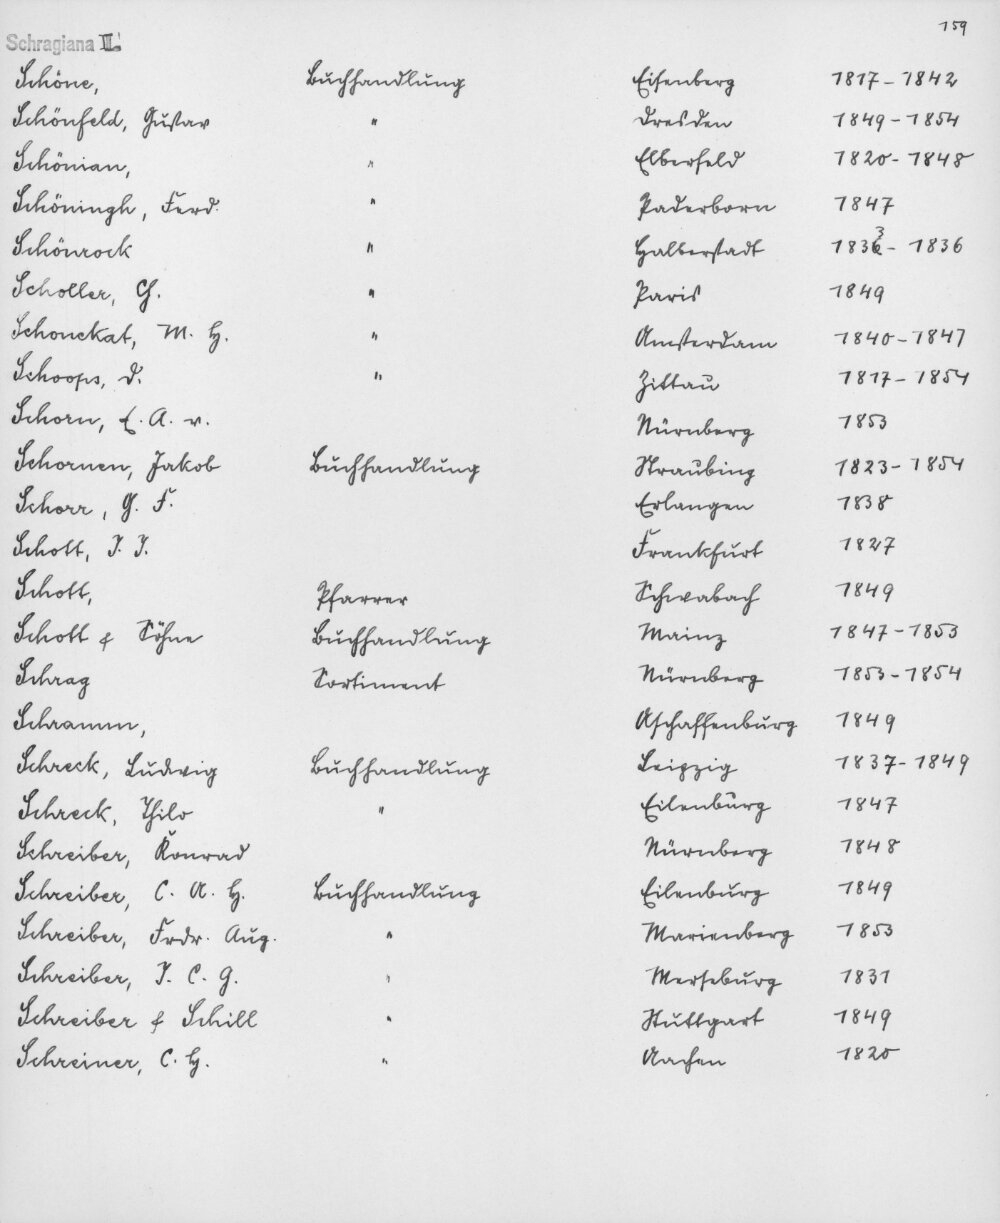 159
Schragiana II.
Schöne, Buchhandlung Eisenberg 1817-1842
Schönfeld, Gustav " Dresden 1849-1854
Schönian, " Elberfeld 1820-1848
Schöningh, Ferd. " Paderborn 1847
Schönrock " Halberstadt 1833-1836
Scholler, G. " Paris 1849
Schonekat, M. H. " Amsterdam 1840-1847
Schoops, D. " Zittau 1817-1854
Schorn, E. A. v. Nürnberg 1853
Schornen, Jakob Buchhandlung Straubing 1823-1854
Schorr, G. F. Erlangen 1838
Schott, J. J. Frankfurt 1827
Schott, Pfarrer Schwabach 1849
Schott & Söhne Buchhandlung Mainz 1847-1853
Schrag Sortiment Nürnberg 1853-1854
Schramm, Aschaffenburg 1849
Schreck, Ludwig Buchhandlung Leipzig 1837-1849
Schreck, Thilo " Eilenburg 1847
Schreiber, Konrad Nürnberg 1848
Schreiber, C. A. H. Buchhandlung Eilenburg 1849
Schreiber, Frdr. Aug. " Marienberg 1853
Schreiber, J. C. G. " Merseburg 1831
Schreiber & Schill " Stuttgart 1849
Schreiner, C. H. " Aachen 1820